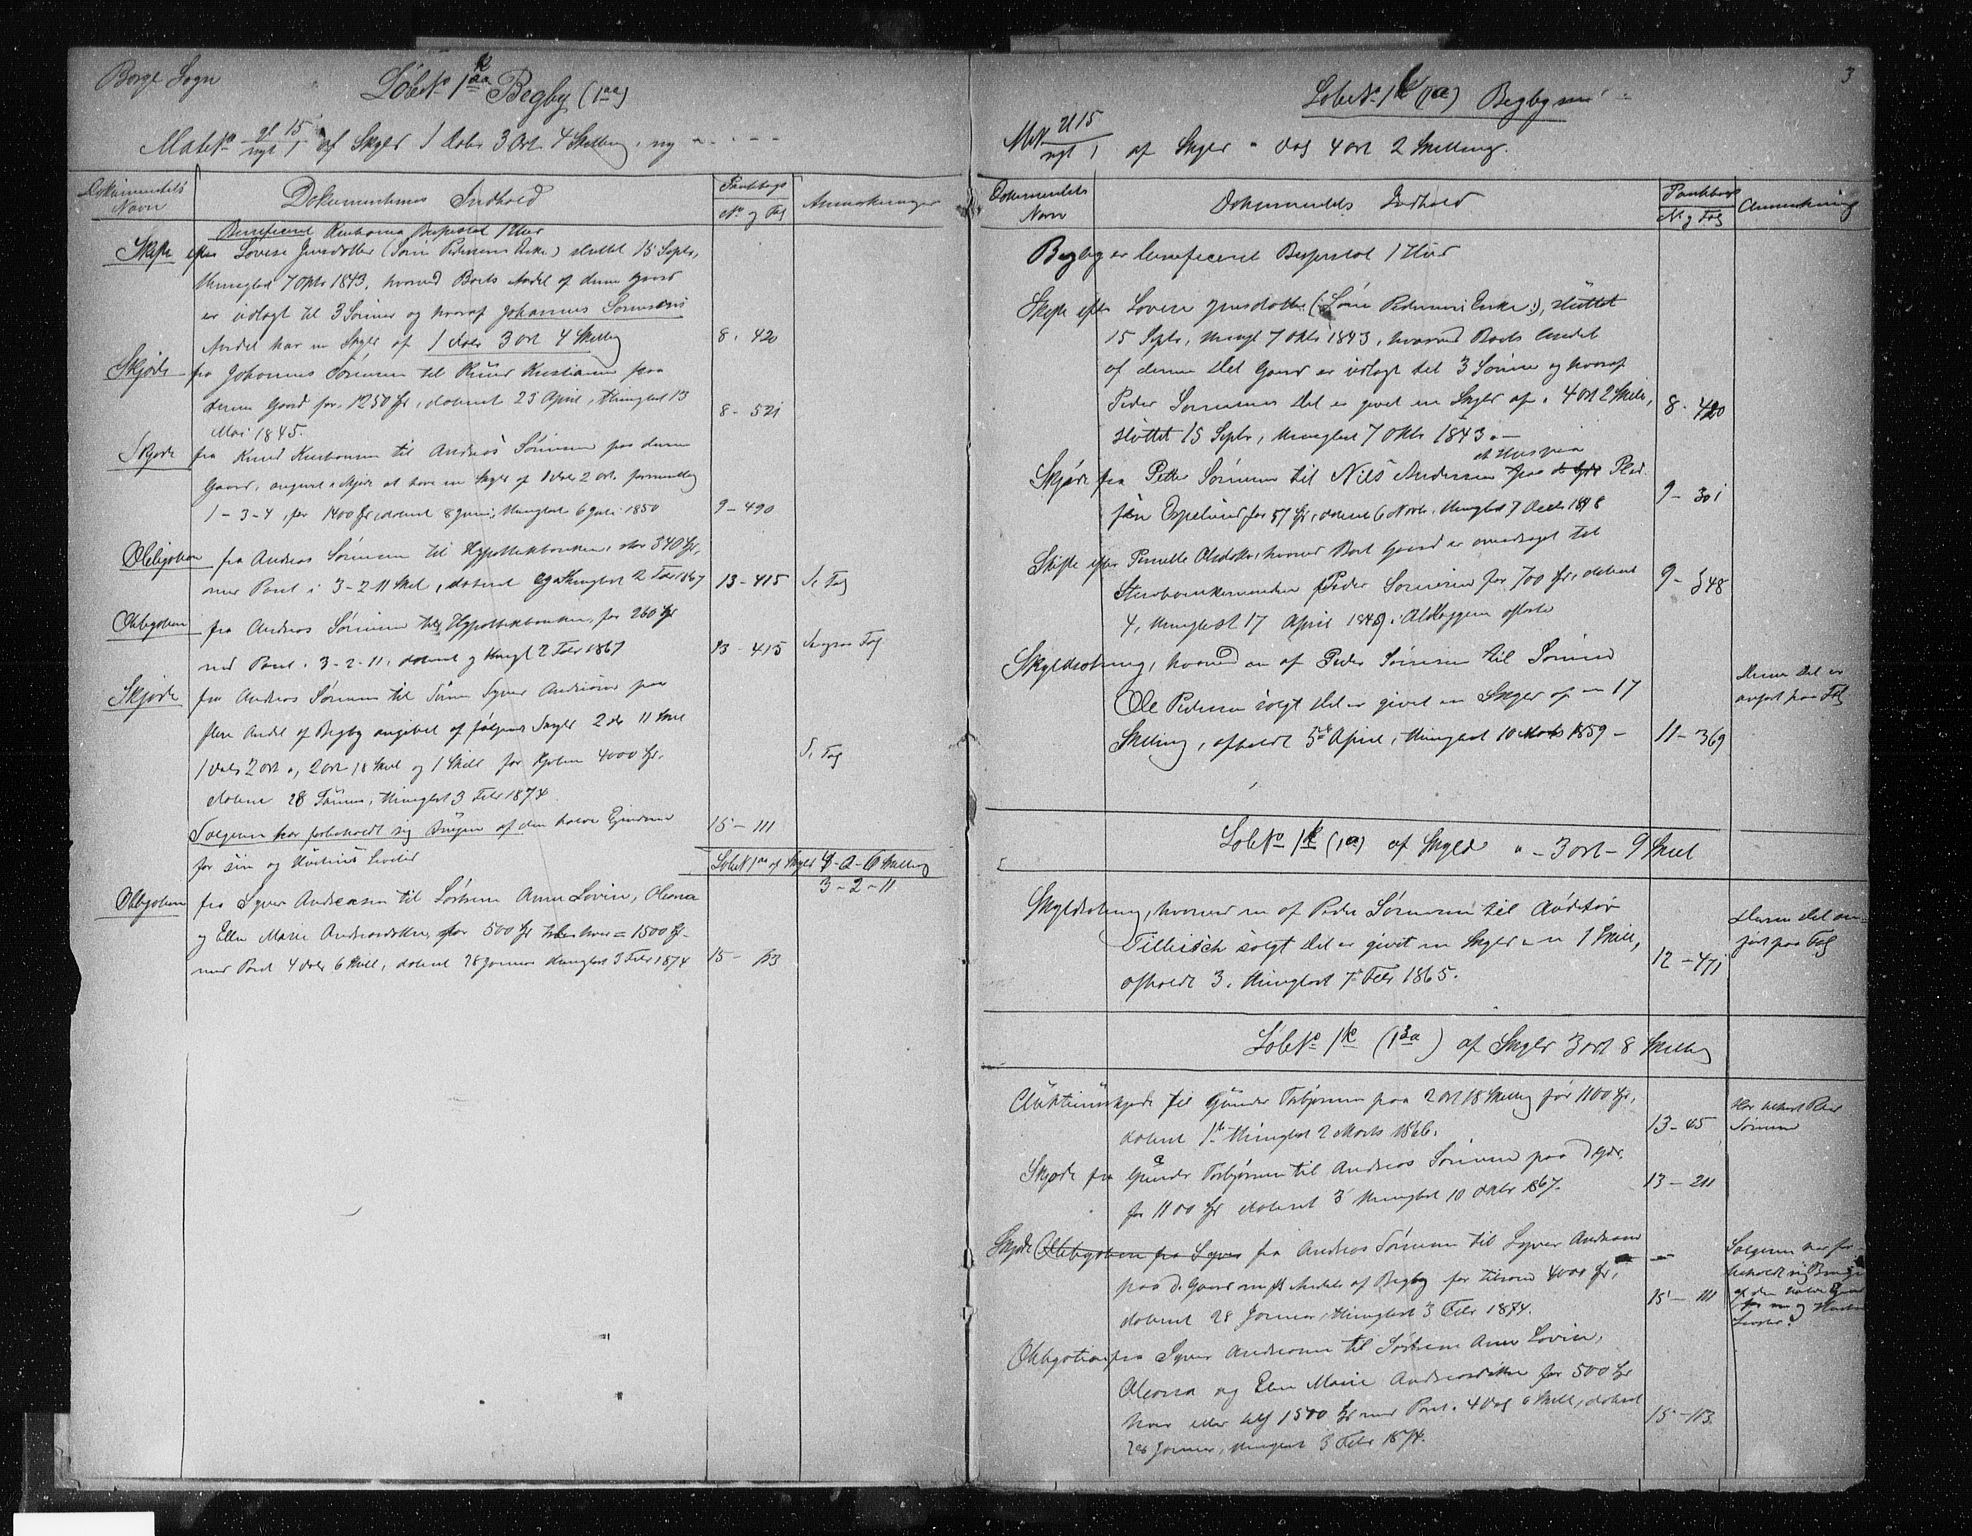 Borge Sogn
Løbe No 1 aa Begby (1aa)
Matr No gl 15 / nyt 1 af Skyld 1 daler 3 ort 4 Skilling, ny - - - -
Dokumentets Navn
Dokumentets Indhold
Pantbogs No og Fol
Anmærkninger
Beneficeret
Skifte efter Lovise Jensdatter (Søren Pedersens Enke) sluttet 15 Septr,
thinglyst 7 Oktr 1843, hvorved Boets Andel af denne Gaard
er udlagt til 3 Sønner og hvoraf Johannes Sørensens
Andel har en Skyld af 1 daler 3 ort 4 Skilling
8 - 420
Skjøde fra Johannes Sørensen til Knud Kristiansen paa
denne Gaard for 1250 Spd, dateret 23 April, thinglyst 13
Mai 1845.
8 - 521
Skjøde fra Knud Kristiansen til Andreas Sørensen paa denne
Gaard, angivet i Skjøde at have en Skyld af 1 daler 2 ort
1 - 3 - 4, for 1400 Spd, dateret 8 Juni, thinglyst 6 Juli 1850
9 - 490
Obligation fra Andreas Sørensen til Hypothekbanken, stor 340 Spd,
med Pant i 3-2-11 Skil, dateret og thinglyst 2 Febr 1867
13 - 415
Obligation fra Andreas Sørensen til Hypothekbanken, for 260 Spd
med Pant i 3-2-11, dateret og thingl 2 Febr 1867
13 - 415
Skjøde fra Andreas Sørensen til Sønnen Syver Andreasen paa
flere Andel af Begby angivet af følgende Skyld 2 dr 11 Skil
1 daler 2 ort, 2 ort 18 Skil og 1 Skill for Kjøbes 4000 Spd,
dateret 28 Januar, thinglyst 3 Febr 1874.
15 - 111
Sælgeren har forbeholdt sig Brugen af den halve Eiendom
for sin og Hustrus Levetid
Løbe No 1aa af Skyld
3 - 2 - 11
Obligation fra Syver Andreasen til Søstrene Anne Lovise, Oleana
og Ellen Marie Andreasdøttre, for 500 Spd hver = 1500 Spd
med Pant 4 daler 6 Skill, dateret 28 Januar thinglyst 3 Febr 1874
15 - 113
3
Løbe No 1 (1a) Begby
Mtr No gl 15 / nyt 1 af Skyld " dal 4 ort 2 Skilling.
Dokumentets Navn
Dokumentets Indhold
Pantbogs No og Fol
Anmærkning
Begby er beneficeret
Skifte efter Lovise Jensdatter (Søren Pedersens Enke), sluttet
15 Septr, thinglyst 7 Oktr 1843, hvorved Boets Andel
af denne Del Gaard er udlagt til 3 Sønner og hvoraf
Peder Sørensens Del er givet en Skyld af " 4 ort 2 Skill,
sluttet 15 Septr, thinglyst 7 Oktr 1843.
8 - 420
et Huus paa
Skjøde fra Peder Sørensen til Nils Andersen
for 57 Spd, dateret 6 Novb, thinglyst 7 Decb 1848
9 - 301
Skifte efter Pernille Olsdatter, hvorved Boets Gaard er overdraget til
Peder Sørensen for 700 Spd, dateret
4, thinglyst 17 April 1849,
9 - 348
Skyldsætning, hvorved en af Peder Sørensen til Sønnen
Ole Pedersen solgt Del er givet en Skyld af " - " 17
Skilling, afholdt 5te April, thinglyst 10 1859 -
11 - 369
Denne Del er
anført paa Fol
Løbe No 1 (1a) af Skyld " - 3 ort - 9 Skil
Skyldsætning, hvorved en af Peder Sørensen til Auditør
Tillisch solgt Del er givet en Skyld " - " 1 Skill,
afholdt 3, thinglyst 7 Febr 1865.
12 - 471
Denne Del an-
ført paa Fol
Løbe No 1 (1a) af Skyld 3 ort 8 Skilling
Auktionsskjøde til Gunder Torbjørnsen paa 2 ort 18 Skilling for 1100 Spd,
dateret 1ste thinglyst 2 Marts 1866.
13 - 45
Har tilhørt Peder
Sørensen
Skjøde fra Gunder Torbjørnsen til Andreas Sørensen paa
for 1100 Spd dateret 3 thinglyst 10 Oktbr 1867.
13 - 211
Skjøde Obligation fra Syver fra Andreas Sørensen til Syver Andreasen
paa d. Gaard Andele af Begby for tilsam 4000 Spd,
dateret 28 Januar, thinglyst 3 Febr 1874.
15 - 111
Sælgeren har for-
beholdt sig Brugen
af den halve Gaard
for sin og Hustrus
Levetid.
Obligation fra Syver Andreasen til Søstrene Anne Lovise,
Oleana og Ellen Marie Andreasdøttre for 500 Spd
hver eller tils 1500 Spd med Pant i 4 Dal 6 Skill, dateret
28 Januar, thinglyst 3 Febr 1874.
15 - 113